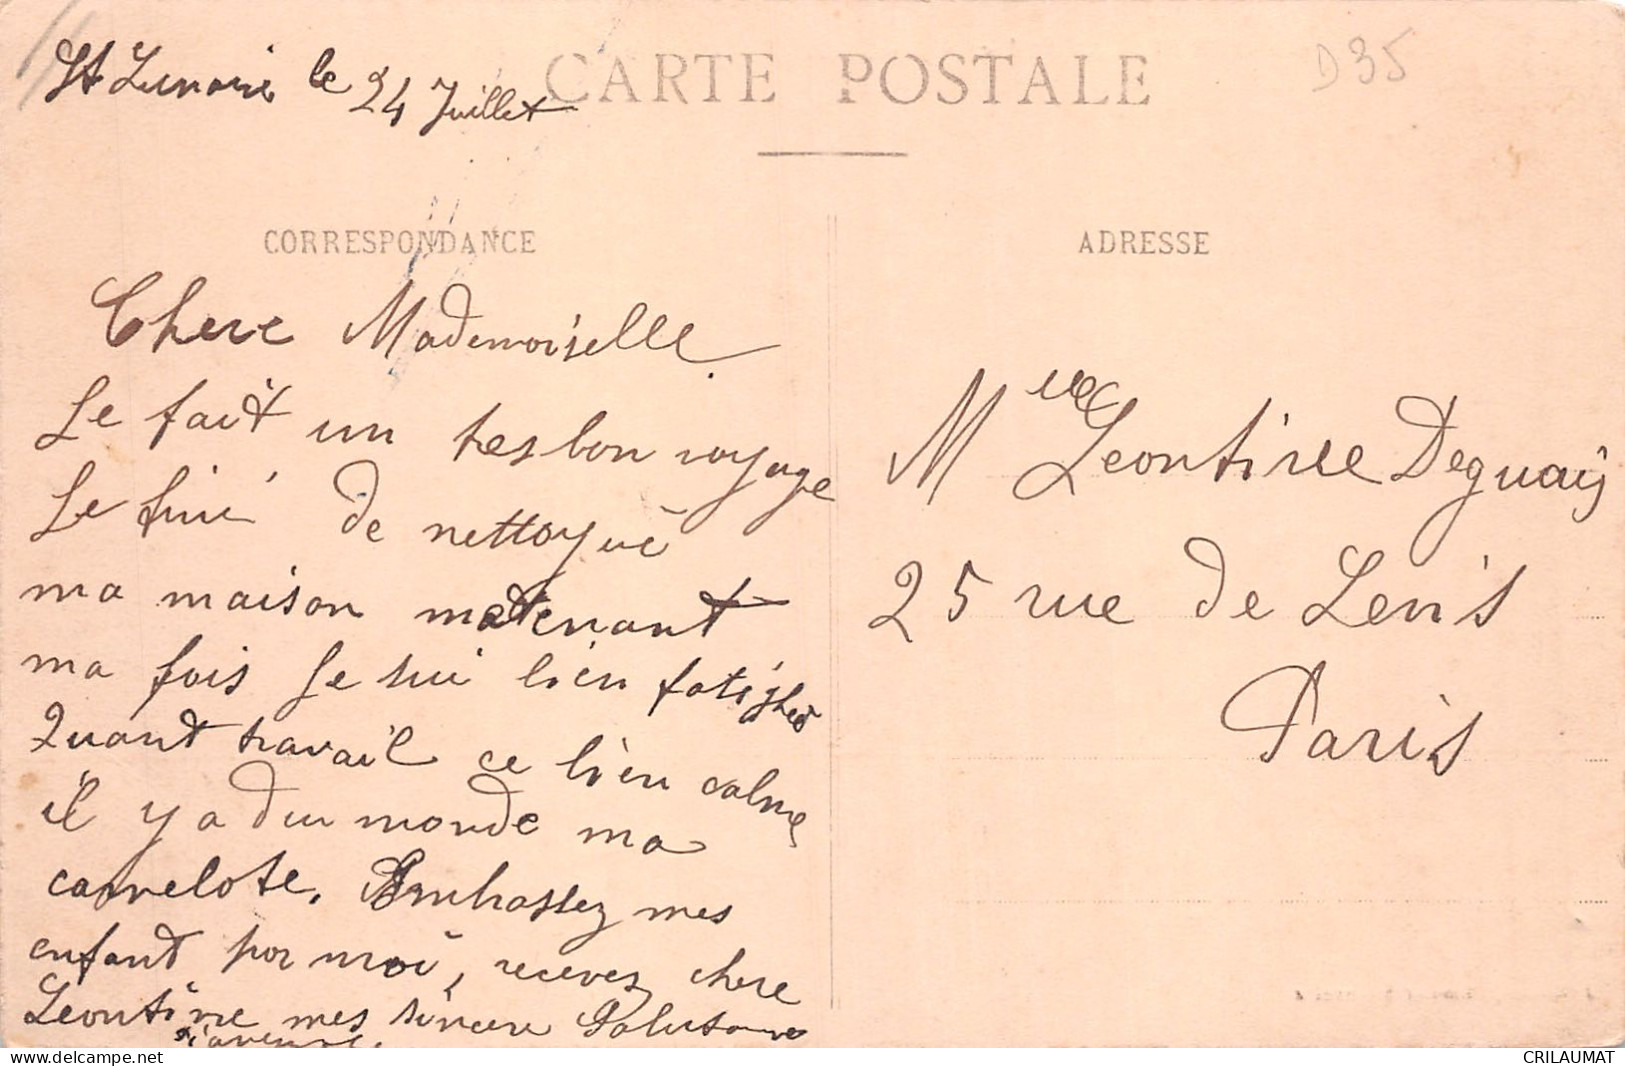 St Lunaire le 24 Juillet
CARTE POSTALE
D35
CORRESPONDANCE
Chere Mademoiselle
Je fait un tres bon voyage
Je fini de nettoyué
ma maison matenant
ma fois Je sui bien fatigher
Quant travail ce bien calme
il y a du monde ma
camelote. Embrassez mes
enfant por moi, recevez chere
Leontine mes sincere Salutation
ADRESSE
Melle Leontine Deguaij
25 rue de Lenis
Paris
www.delcampe.net
CRILAUMAT